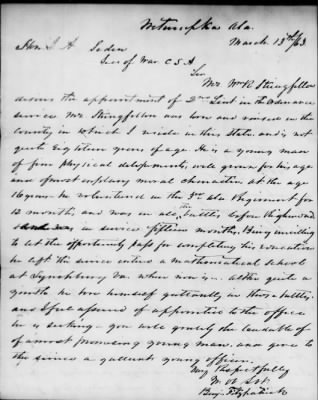 Wetumpka Ala.
March 13th/63
Hon. J. A. Seden
Sec of War C S A
Sir
Mr Wm R Stringfellow
desires the appointment of 2nd Lieut in the Ordnance
service Mr Stringfellow was born and raised in the
County in which I reside in this State and is not
quite Eighteen years of age. He is a young man
of fine physical developments, well grown for his age
and of most exemplary moral character at the age
16 years he volunteered in the 3rd Ala Regiment for
12 months, and was in all the battles before Richmond
was in service fifteen months. Being unwilling
to let the opportunity pass for completing his education
he left the service entered a mathematical school
at Lynchburg Va where now is. Altho quite a
youth he bore himself gallantly in those battles.
and I feel assured if appointed to the office
he is seeking. you will gratify the laudable
of a most promising young man. and give to
the service a gallant young officer.
Very Respectfully
Yr. Ob Svt.
Benj. Fitzpatrick